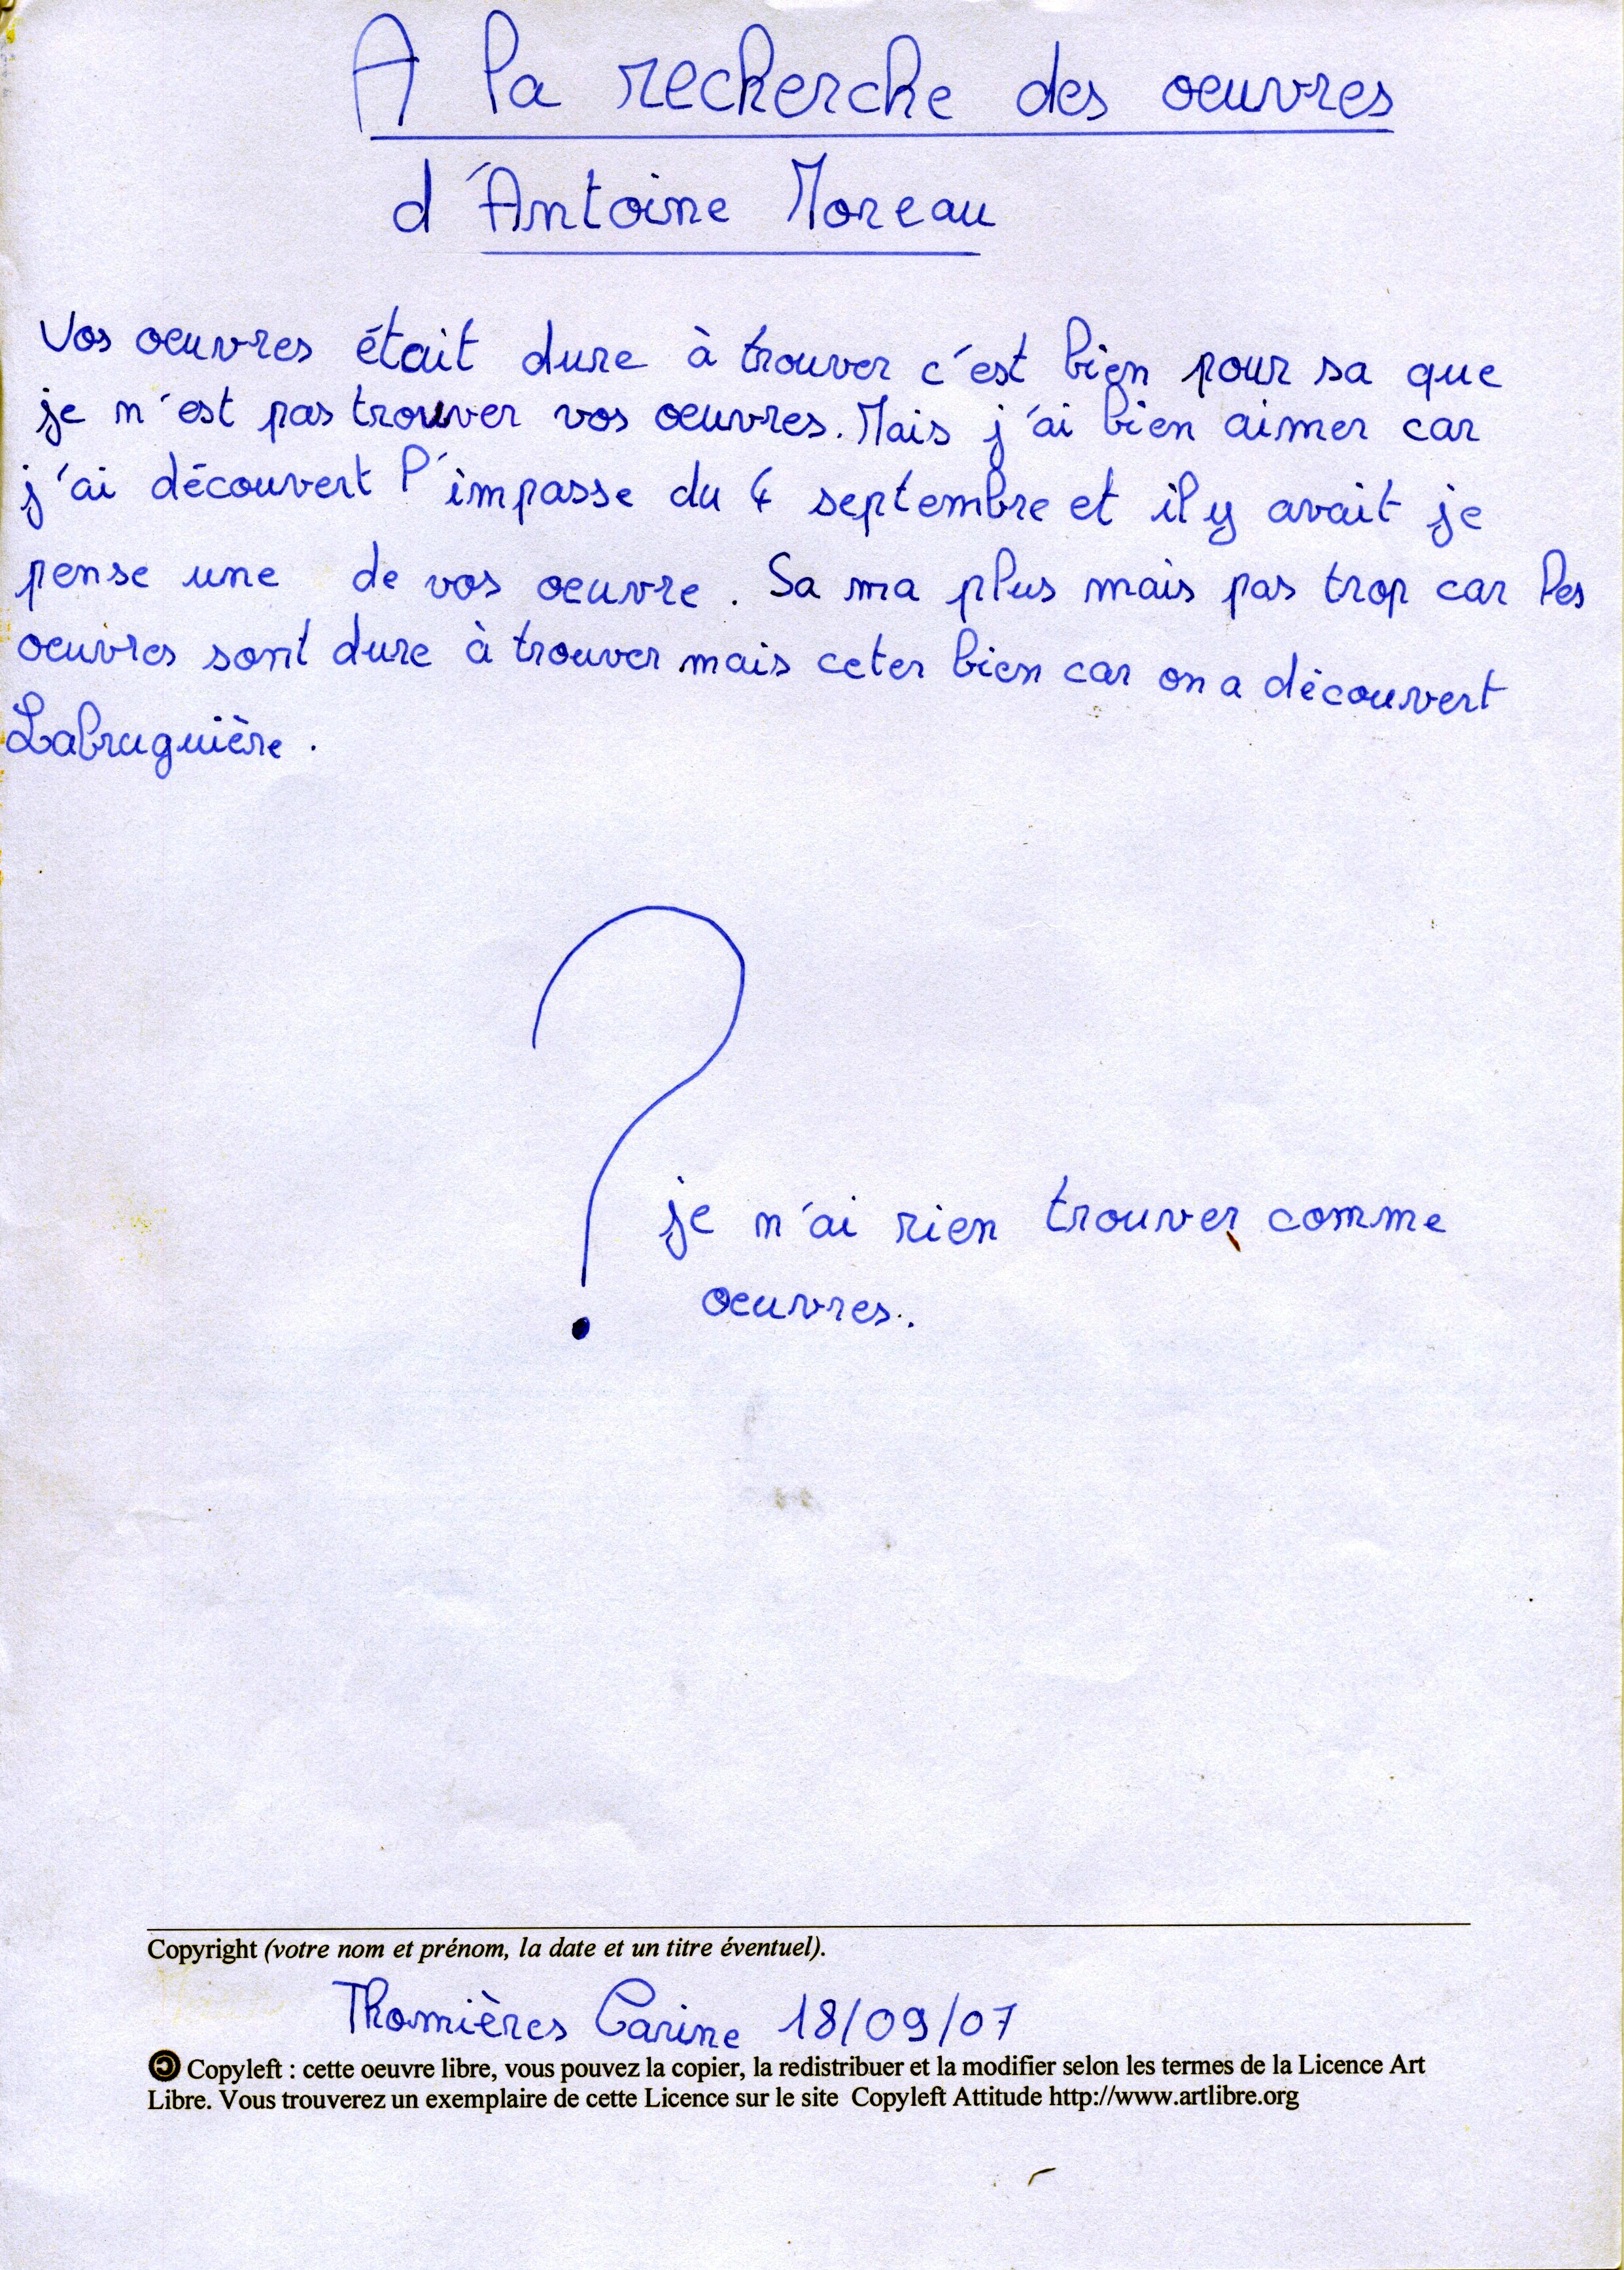 A la recherche des oeuvres
d'Antoine Moreau
Vos oeuvres était dure à trouver c'est bien pour sa que
je n'est pas trouver vos oeuvres. Mais j'ai bien aimer car
j'ai découvert l'impasse du 4 septembre et il y avait je
pense une de vos oeuvre. Sa ma plus mais pas trop car les
oeuvres sont dure à trouver mais ceter bien car on a découvert
Labruguière.
?
je n'ai rien trouver comme
oeuvres.
Copyright (votre nom et prénom, la date et un titre éventuel).
Thomières Carine 18/09/07
Copyleft : cette oeuvre libre, vous pouvez la copier, la redistribuer et la modifier selon les termes de la Licence Art
Libre. Vous trouverez un exemplaire de cette Licence sur le site Copyleft Attitude http://www.artlibre.org